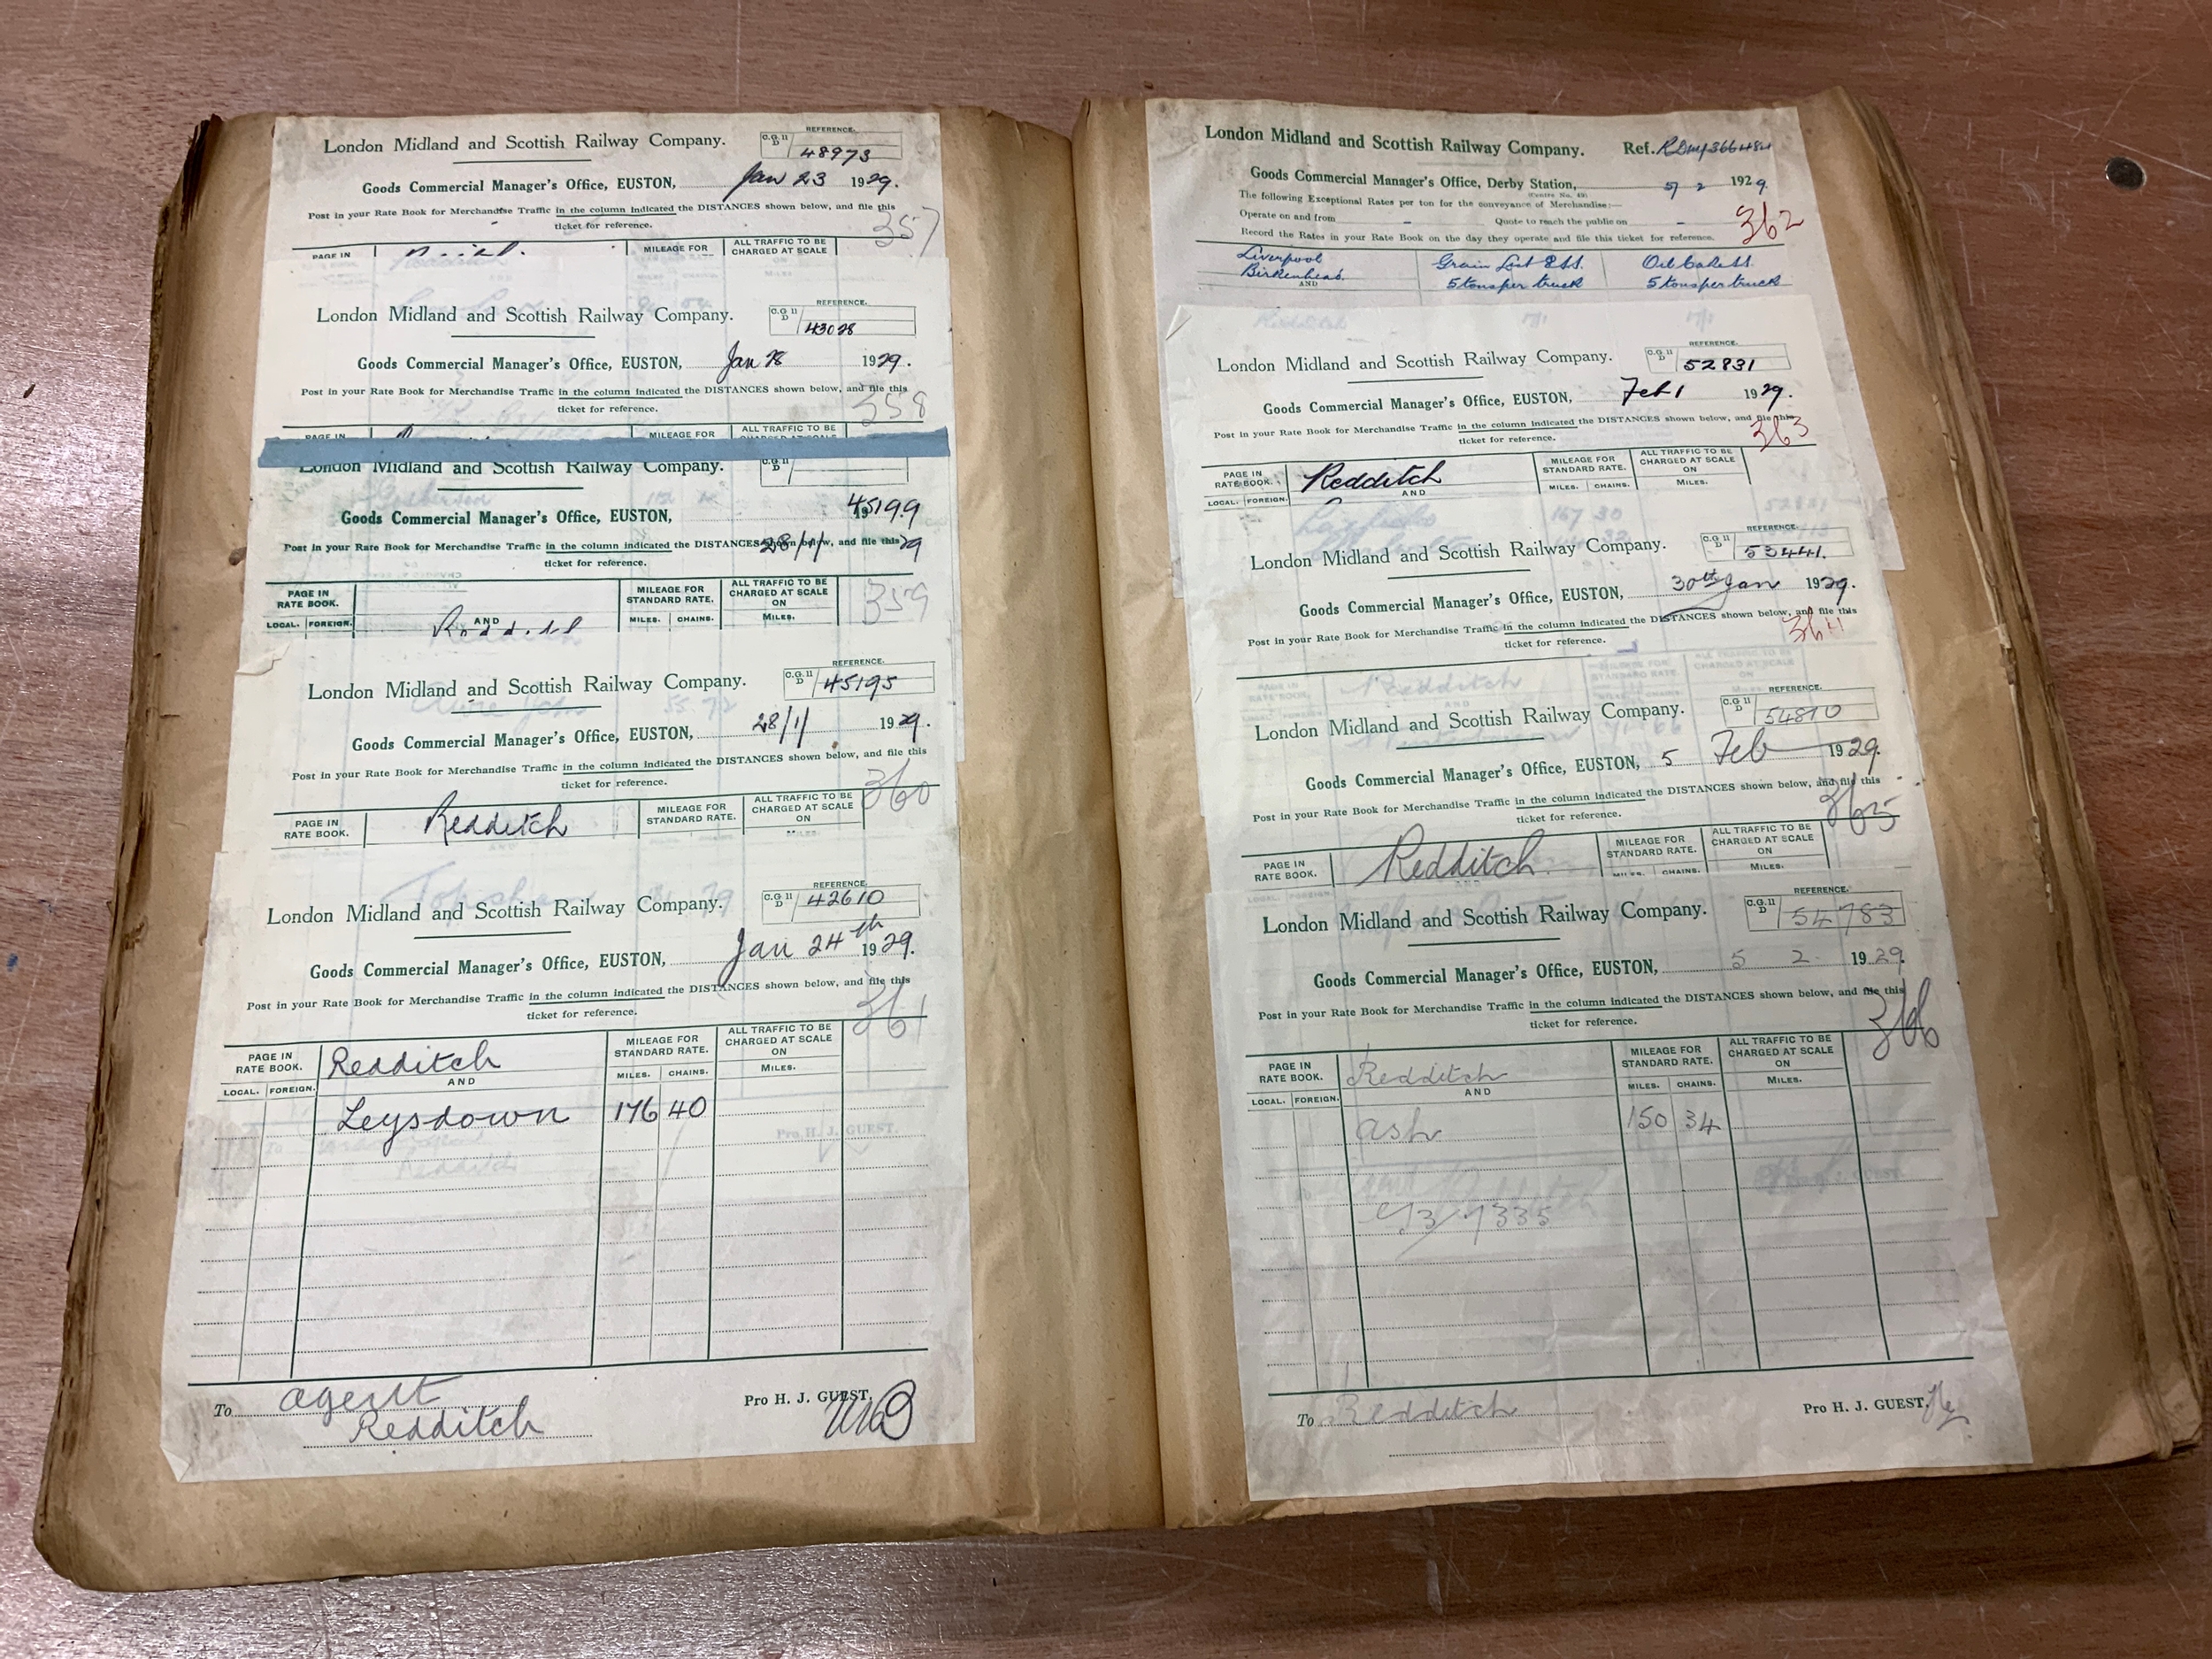 London Midland and Scottish Railway Company.
REFERENCE.
C.G. 11
D
48973
Goods Commercial Manager's Office, EUSTON, Jan 23 1929.
Post in your Rate Book for Merchandise Traffic in the column indicated the DISTANCES shown below, and file this
ticket for reference.
357
PAGE IN
MILEAGE FOR
ALL TRAFFIC TO BE
CHARGED AT SCALE
London Midland and Scottish Railway Company.
REFERENCE.
C.G 11
D
43028
Goods Commercial Manager's Office, EUSTON, Jan 28 1929.
Post in your Rate Book for Merchandise Traffic in the column indicated the DISTANCES shown below, and file this
ticket for reference.
358
PAGE IN
MILEAGE FOR
ALL TRAFFIC TO BE
London Midland and Scottish Railway Company.
C.G 11
D
45199
Goods Commercial Manager's Office, EUSTON, 19
Post in your Rate Book for Merchandise Traffic in the column indicated the DISTANCES shown below, and file this
28/1/29
ticket for reference.
359
PAGE IN
RATE BOOK.
MILEAGE FOR
STANDARD RATE.
ALL TRAFFIC TO BE
CHARGED AT SCALE
ON
LOCAL. FOREIGN. AND MILES. CHAINS. MILES.
London Midland and Scottish Railway Company.
REFERENCE.
C.G. 11
D
45195
Goods Commercial Manager's Office, EUSTON, 28/1/ 1929.
Post in your Rate Book for Merchandise Traffic in the column indicated the DISTANCES shown below, and file this
ticket for reference.
360
PAGE IN
RATE BOOK.
Redditch
MILEAGE FOR
STANDARD RATE.
ALL TRAFFIC TO BE
CHARGED AT SCALE
ON
London Midland and Scottish Railway Company.
REFERENCE.
C.G 11
D
42610
Goods Commercial Manager's Office, EUSTON, Jan 24th 1929.
Post in your Rate Book for Merchandise Traffic in the column indicated the DISTANCES shown below, and file this
ticket for reference.
361
PAGE IN
RATE BOOK.
Redditch
MILEAGE FOR
STANDARD RATE.
ALL TRAFFIC TO BE
CHARGED AT SCALE
ON
LOCAL. FOREIGN. AND MILES. CHAINS. MILES.
Leysdown 176 40
To agent
Redditch
Pro H. J. GUEST.
London Midland and Scottish Railway Company. Ref.
Goods Commercial Manager's Office, Derby Station, 5/ 2 1929.
The following Exceptional Rates per ton for the conveyance of Merchandise:—
Operate on and from – Quote to reach the public on –
Record the Rates in your Rate Book on the day they operate and file this ticket for reference.
362
Liverpool
Birkenhead.
AND
Grain List
5 tons per truck
Oil Cake
5 tons per truck
London Midland and Scottish Railway Company.
REFERENCE.
C.G 11
D
52831
Goods Commercial Manager's Office, EUSTON, Feb 1 1929.
Post in your Rate Book for Merchandise Traffic in the column indicated the DISTANCES shown below, and file this
ticket for reference.
363
PAGE IN
RATE BOOK.
Redditch
MILEAGE FOR
STANDARD RATE.
ALL TRAFFIC TO BE
CHARGED AT SCALE
ON
LOCAL. FOREIGN. AND MILES. CHAINS. MILES.
London Midland and Scottish Railway Company.
REFERENCE.
C.G 11
D
53441.
Goods Commercial Manager's Office, EUSTON, 30th Jan 1929.
Post in your Rate Book for Merchandise Traffic in the column indicated the DISTANCES shown below, and file this
ticket for reference.
364
London Midland and Scottish Railway Company.
REFERENCE.
C.G 11
D
54810
Goods Commercial Manager's Office, EUSTON, 5 Feb 1929.
Post in your Rate Book for Merchandise Traffic in the column indicated the DISTANCES shown below, and file this
ticket for reference.
365
PAGE IN
RATE BOOK.
Redditch.
MILEAGE FOR
STANDARD RATE.
ALL TRAFFIC TO BE
CHARGED AT SCALE
ON
MILES. CHAINS. MILES.
London Midland and Scottish Railway Company.
REFERENCE.
C.G.11
D
54783
Goods Commercial Manager's Office, EUSTON, 5 2 1929.
Post in your Rate Book for Merchandise Traffic in the column indicated the DISTANCES shown below, and file this
ticket for reference.
366
PAGE IN
RATE BOOK.
Redditch
MILEAGE FOR
STANDARD RATE.
ALL TRAFFIC TO BE
CHARGED AT SCALE
ON
LOCAL. FOREIGN. AND MILES. CHAINS. MILES.
Ash 150 34
To Redditch
Pro H. J. GUEST.